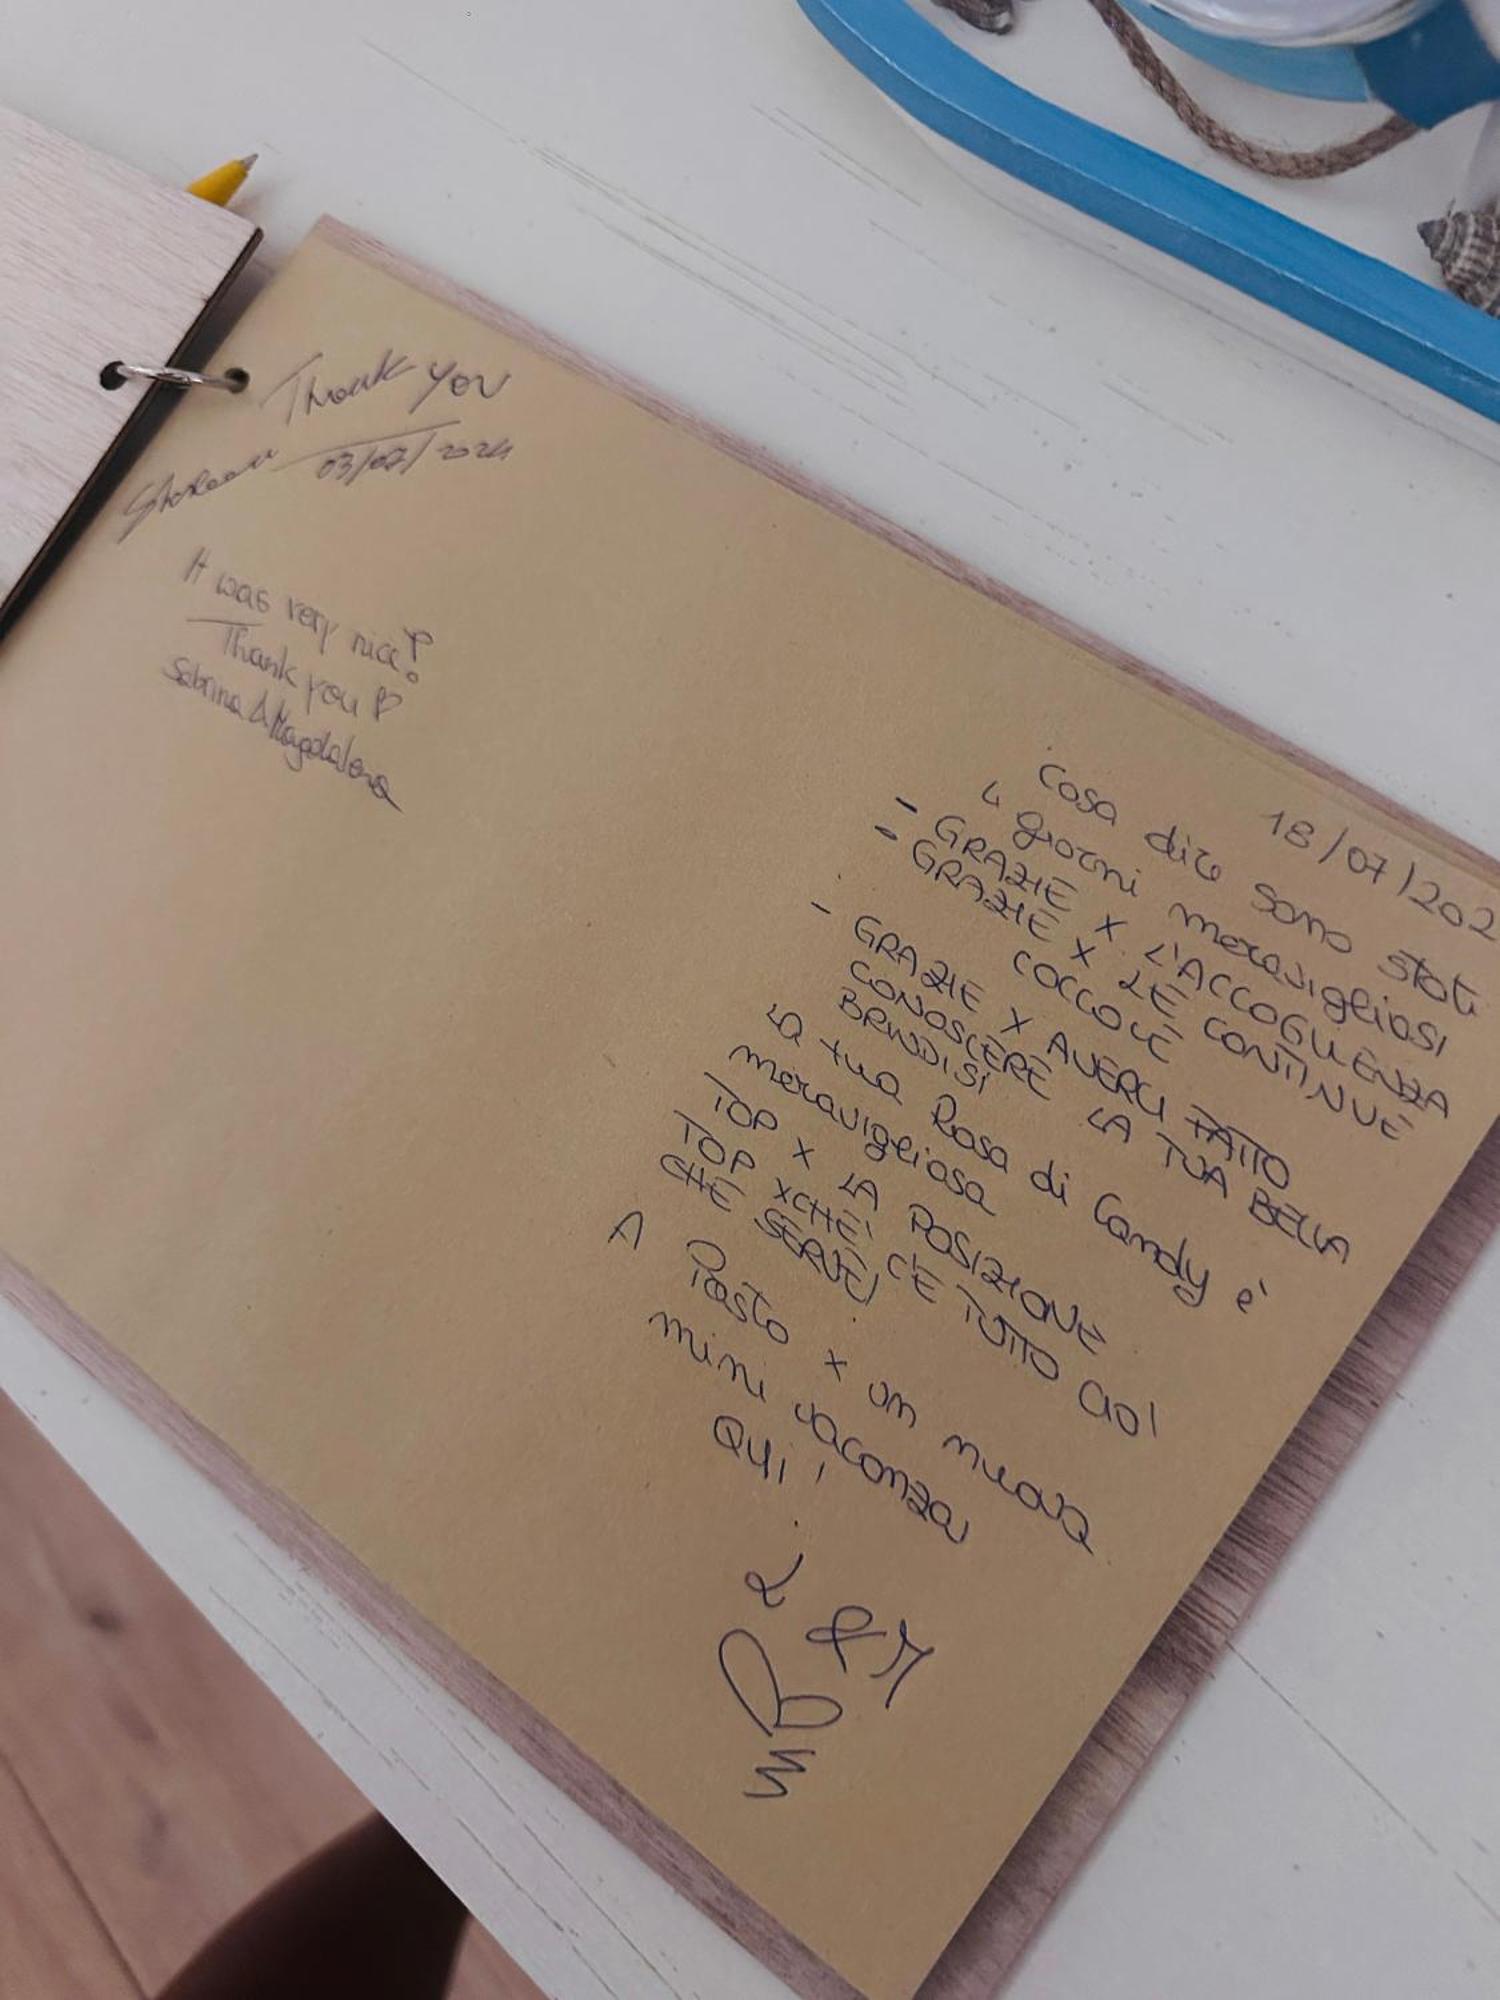 Thank you
03/07/2024
It was very nice!
Thank you ♡
Sabrina & Magdalena
18/07/202
Cosa dire sono stati
4 giorni meravigliosi
- GRAZIE X L'ACCOGLIENZA
- GRAZIE X LE CONTINUE
COCCOLE
- GRAZIE X AVERCI FATTO
CONOSCERE LA TUA BELLA
BRINDISI
La tua Rosa di Candy è
meravigliosa
TOP X LA POSIZIONE
TOP XCHÈ C'È TUTTO CIO'
CHE SERVE!
A Presto x un nuova
mini vacanza
QUI!
L & M